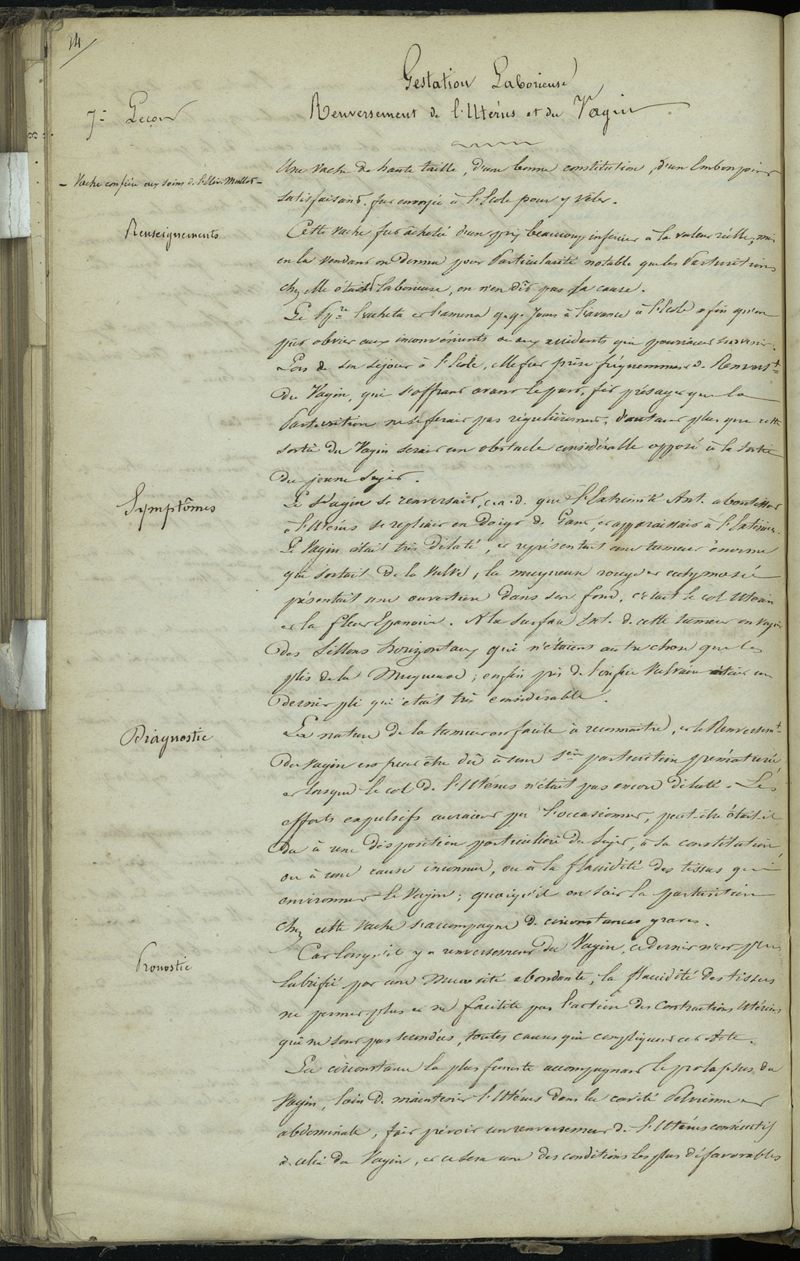 14/
Gestation Laborieuse
7e Leçon
Renversement de l'Utérus et du Vagin
- Vache confiée aux soins de l'Elève Mallet -
Une vache de haute taille, d'une bonne constitution, d'un Embonpoint
satisfaisant, fut envoyée à l'Ecole pour y vêler.
Renseignements
Cette vache fut achetée d'un prix beaucoup inférieur à la valeur réelle, mais
en la vendant on donna pour Particularité notable que les Parturitions
chez elle étaient laborieuse, on n'en dit pas la cause.
Le Ppre l'acheta et l'amena q.q. Jours à l'avance à l'Ecole afin qu'on
pût obvier aux inconvénients ou aux accidents qui pourraient survenir.
Lors de son séjour à l'Ecole, elle fut prise fréquemment de Renverst
du Vagin, qui s'offrant avant le part, fit présager que la
Parturition ne se ferait pas régulièrement, d'autant plus que cette
sortie du Vagin serait un obstacle considérable opposé à la sortie
du jeune sujet.
Symptômes
Le Vagin se renversait, c.a.d. que l'Extrémité Ant. aboutissant
à l'Utérus se repliait en Doigt de Gant, et apparaissait à l'Extérieur.
Le Vagin était très Dilaté, et représentait une tumeur énorme
qui sortait de la Vulve, la muqueuse rouge et ecchymosée
présentait une ouverture dans son fond, c'était le col Utérin
et la fleur Epanouie. A la surface Ext. de cette tumeur on voyait
des Sillons horizontaux qui n'étaient autre chose que les
plis de la Muqueuse ; enfin près de l'orifice Vulvaire était un
dernier pli qui était très considérable.
Diagnostic
La nature de la tumeur est facile à reconnaître, et le Renversemt
du Vagin est peut être dû à une 1ère parturition prématurée
et lorsque le col de l'Utérus n'était pas encore dilaté. Les
efforts expulsifs auraient pu l'occasionner, peut-être était-il
dû à une disposition particulière du Sujet, à sa constitution
ou à une cause inconnue, ou à la flacidité des tissus qui
environnent le Vagin ; quoiqu'il en soit la parturition
chez cette vache s'accompagne de circonstances graves.
Pronostic
Car lorsqu'il y a renversement du Vagin, ce dernier n'est plus
lubrifié par une mucosité abondante, la flacidité des tissus
ne permet plus et ne facilite pas l'action des Contractions Utérines
qui ne sont pas secondées, toutes causes qui compliquent cet Acte.
La circonstance la plus funeste accompagnant le prolapsus du
Vagin, loin de maintenir l'Utérus dans la cavité Pelvienne et
abdominale, fait prévoir un renversement de l'Utérus consécutif
à celui du Vagin, et ce sera une des conditions les plus défavorables